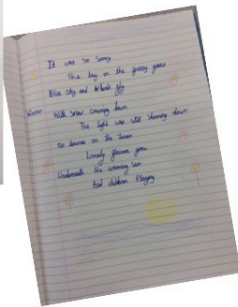 It was so sunny
She lay on the grassy grass
Blue sky and
Winter With snow coming down
The light was still shining down
no leaves on the trees
Lovely flowers grow
Underneath the warming sun
And children Playing